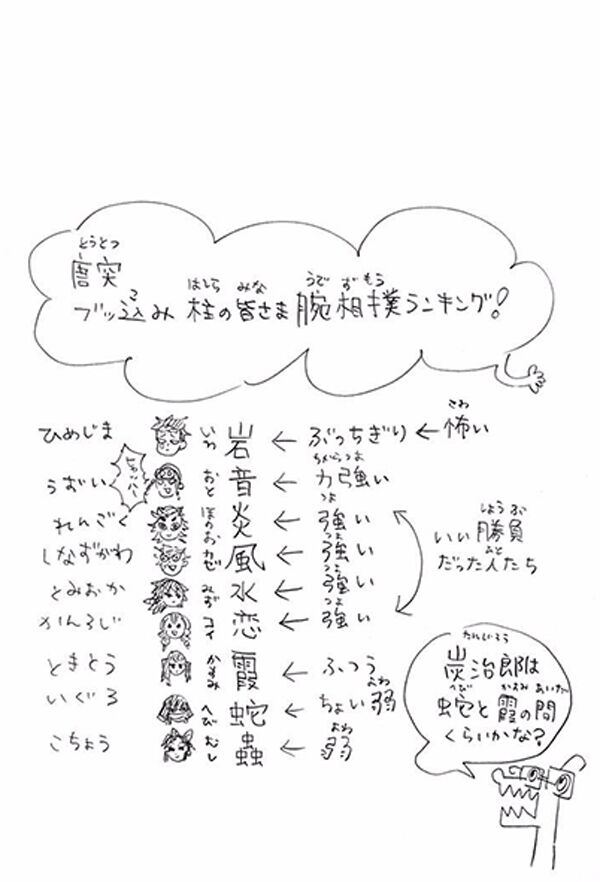 とうとつ
唐突
ブッ込み 柱の皆さま 腕相撲ランキング!
こ はしら みな うで ずもう
ひめじま いわ 岩 ← ぶっちぎり ← 怖い
さわ
うずい ヒャッハー おと 音 ← 力強い
ちからつよ
れんごく ほのお 炎 ← 強い
つよ
しなずがわ カゼ 風 ← 強い
つよ
とみおか みず 水 ← 強い
つよ
かんろじ コイ 恋 ← 強い
つよ
いい勝負
しょうぶ
だった人たち
ひと
ときとう かすみ 霞 ← ふつう
いぐろ へび 蛇 ← ちょい弱
よわ
こちょう むし 蟲 ← 弱
よわ
たんじろう
炭治郎は
へび かすみ あいだ
蛇と霞の間
くらいかな?